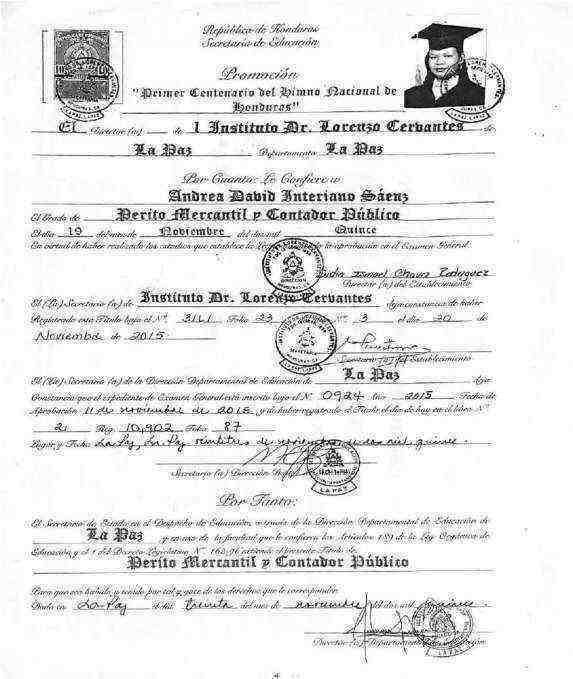 República de Honduras
Secretaría de Educación
Promoción
"Primer Centenario del Himno Nacional de
Honduras"
El Director (a) de l Instituto Dr. Lorenzo Cervantes de
La Paz Departamento La Paz
Por Cuanto: Le Confiere a
Andrea David Interiano Sáenz
El Grado de Perito Mercantil y Contador Público
El día 19 del mes de Noviembre del dos mil Quince
En virtud de haber realizado los estudios que establece la Ley la aprobación en el Examen General
Ismael Chavez Rodriguez
Director (a) del Establecimiento
El (La) Secretario (a) de Instituto Dr. Lorenzo Cervantes deja constancia de haber
Registrado este Título bajo el Nº Folio 23 Nº 3 el día 20 de
Noviembre de 2015.
Secretario (a) del Establecimiento
El (La) Secretario (a) de la Dirección Departamental de Educación de La Paz deja
Constancia que el expediente de Examen General está inscrito bajo el N. 0924 2015 Fecha de
Aprobación 11 de noviembre de y de haber registrado el Título el día de hoy en el libro Nº
21 Reg. 10,902 Folio 87
Lugar y Fecha La Paz, La Paz veintitres de noviembre de dos mil quince.
Secretario (a) Dirección
LA PAZ
Por Tanto:
El Secretario de Estado en el Despacho de Educación, a través de la Dirección Departamental de Educación de
La Paz y en uso de la facultad que le confiere los Artículos de la Ley Orgánica de
Educación y el 1 del Decreto Legislativo Nº 162-96 extiende el presente Título de
Perito Mercantil y Contador Público
Para que sea habido y tenido por tal y goce de los derechos que le corresponden.
Dado en La Paz el día treinta del mes de noviembre del dos mil quince.
Director (a) Departamental de Educación
LA PAZ
4